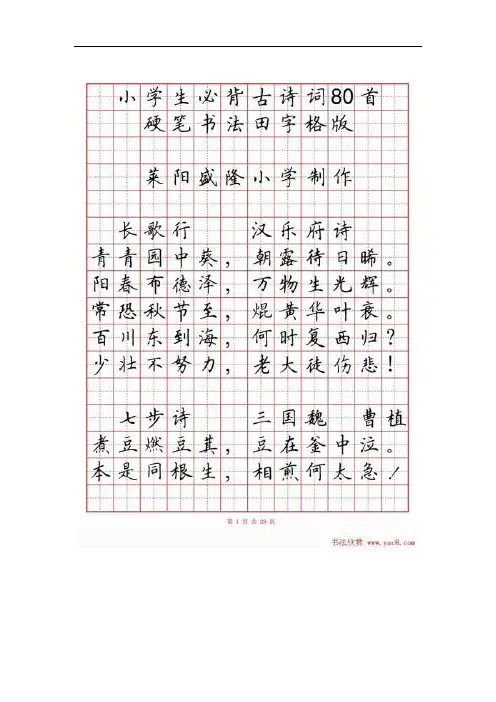 小学生必背古诗词80首
硬笔书法田字格版
莱阳盛隆小学制作
长歌行 汉乐府诗
青青园中葵，朝露待日晞。
阳春布德泽，万物生光辉。
常恐秋节至，焜黄华叶衰。
百川东到海，何时复西归？
少壮不努力，老大徒伤悲！
七步诗 三国魏 曹植
煮豆燃豆萁，豆在釜中泣。
本是同根生，相煎何太急！
第 1 页 共 28 页
书法欣赏 www.yac8.com